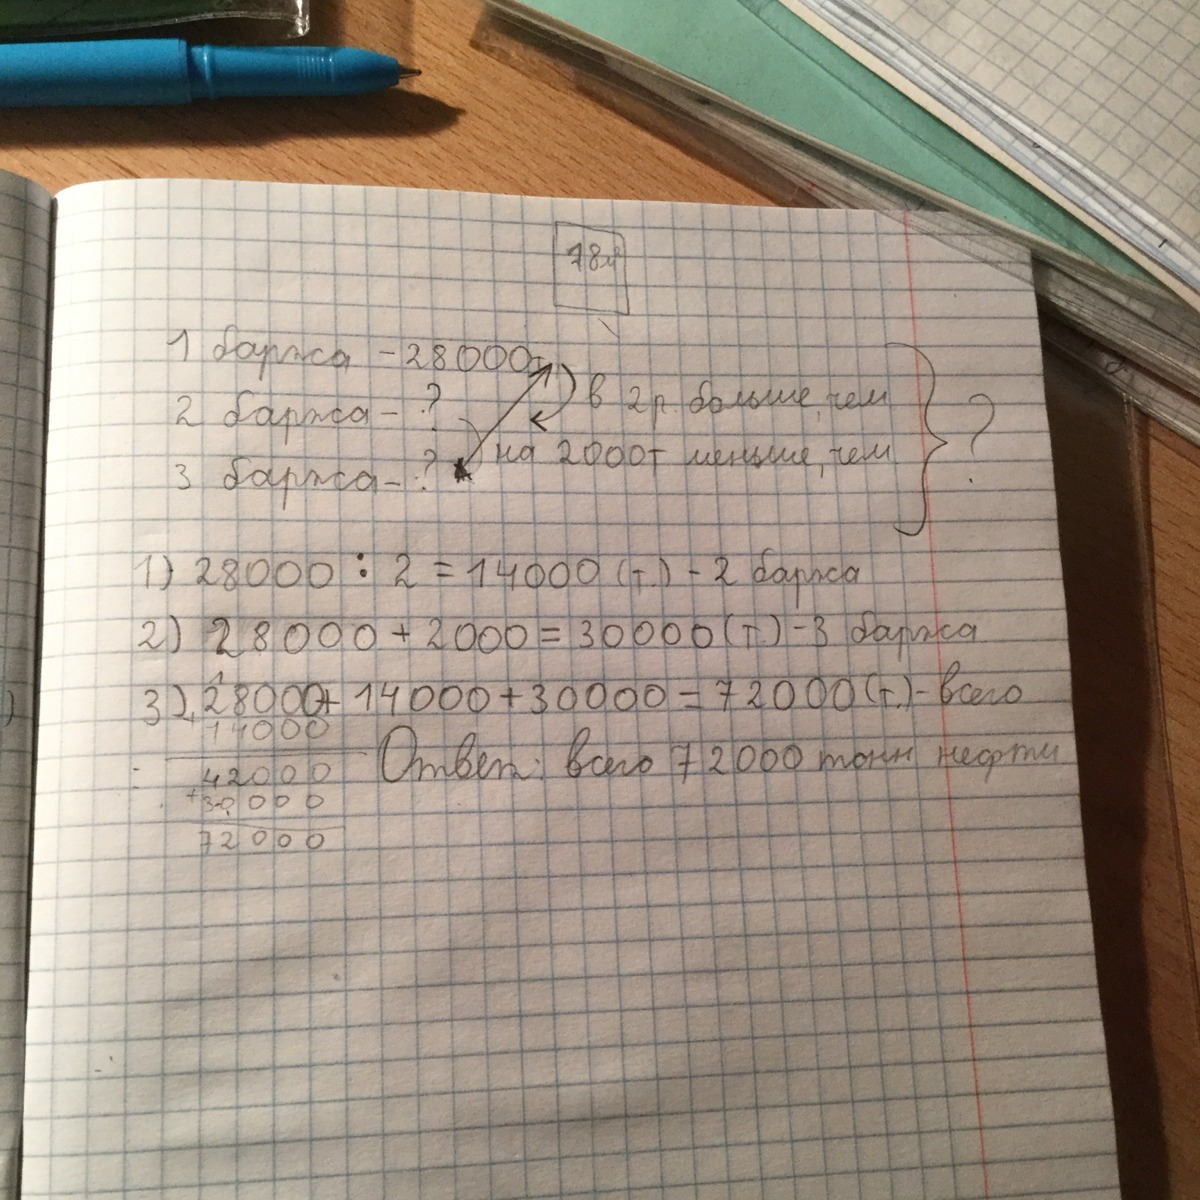 1 баржа - 28000т
2 баржа - ? в 2 р. больше, чем
3 баржа - ? на 2000т меньше, чем
?
1) 28000 : 2 = 14000 (т.) - 2 баржа
2) 28000 + 2000 = 30000 (т.) - 3 баржа
3) 28000 + 14000 + 30000 = 72000 (т.) - всего
14000
42000
+30000
72000
Ответ: всего 72000 тонн нефти